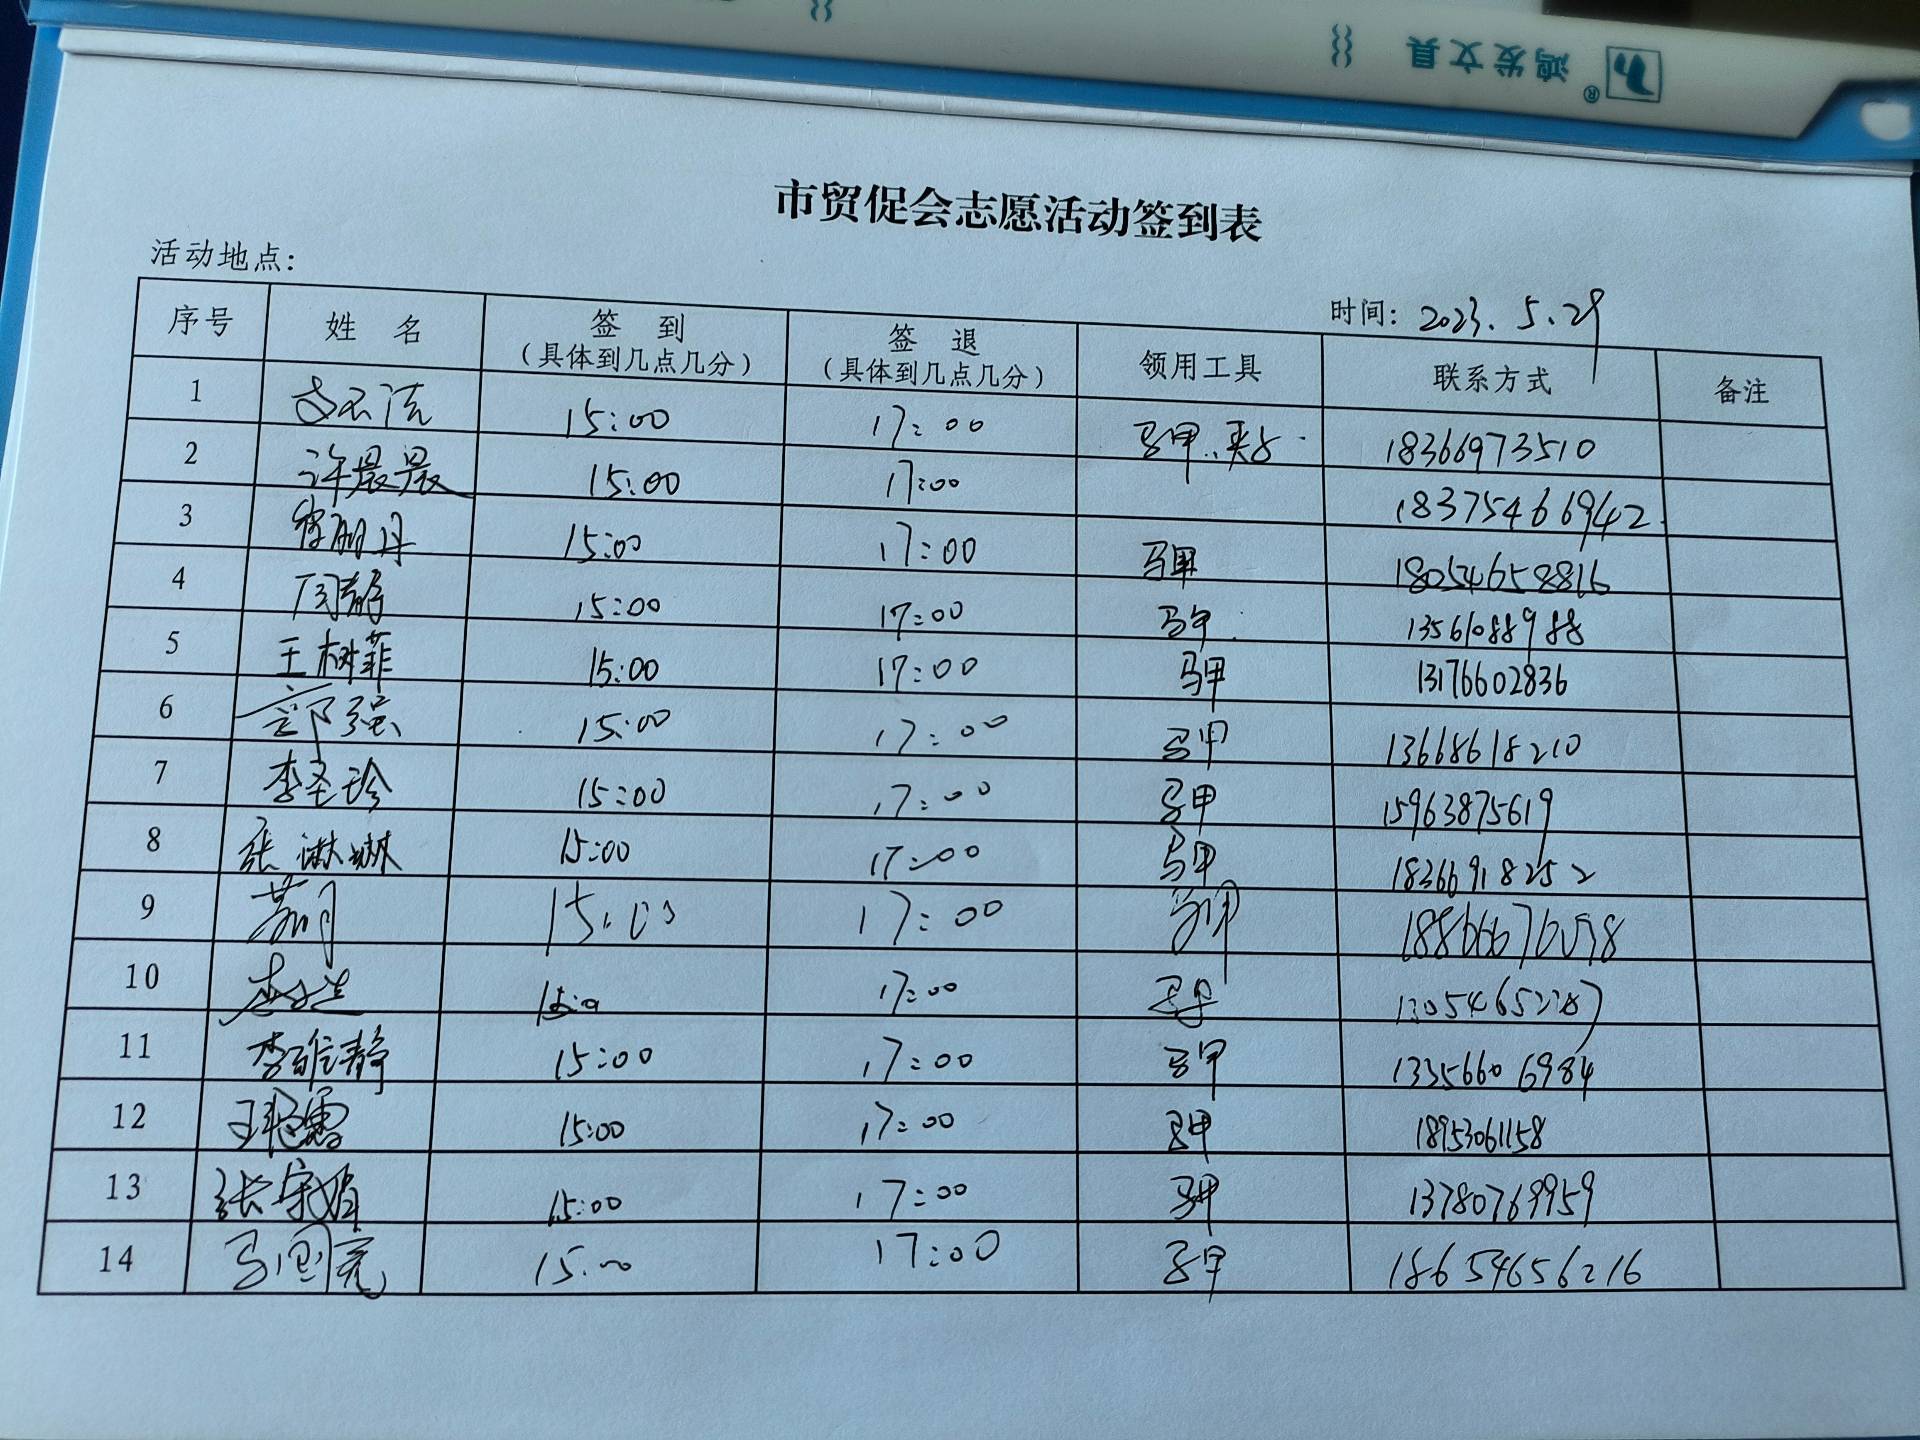 鸿发文具
®
市贸促会志愿活动签到表
活动地点:
时间: 2023.5.29
序号 姓 名 签 到 (具体到几点几分) 签 退 (具体到几点几分) 领用工具 联系方式 备注
1 15:00 17:00 马甲、夹子 18366973510
2 许晨晨 15:00 17:00 18375466942
3 15:00 17:00 马甲 18054658816
4 周静 15:00 17:00 马甲 13561088988
5 王树菲 15:00 17:00 马甲 13176602836
6 郭强 15:00 17:00 马甲 13668618210
7 李圣珍 15:00 17:00 马甲 15963875619
8 张琳琳 15:00 17:00 马甲 18366918252
9 15:00 17:00 马甲
10 17:00 马甲
11 李维静 15:00 17:00 马甲 13356606984
12 15:00 17:00 马甲 18953061158
13 15:00 17:00 马甲 13780769959
14 马国亮 15:00 17:00 马甲 18654656216